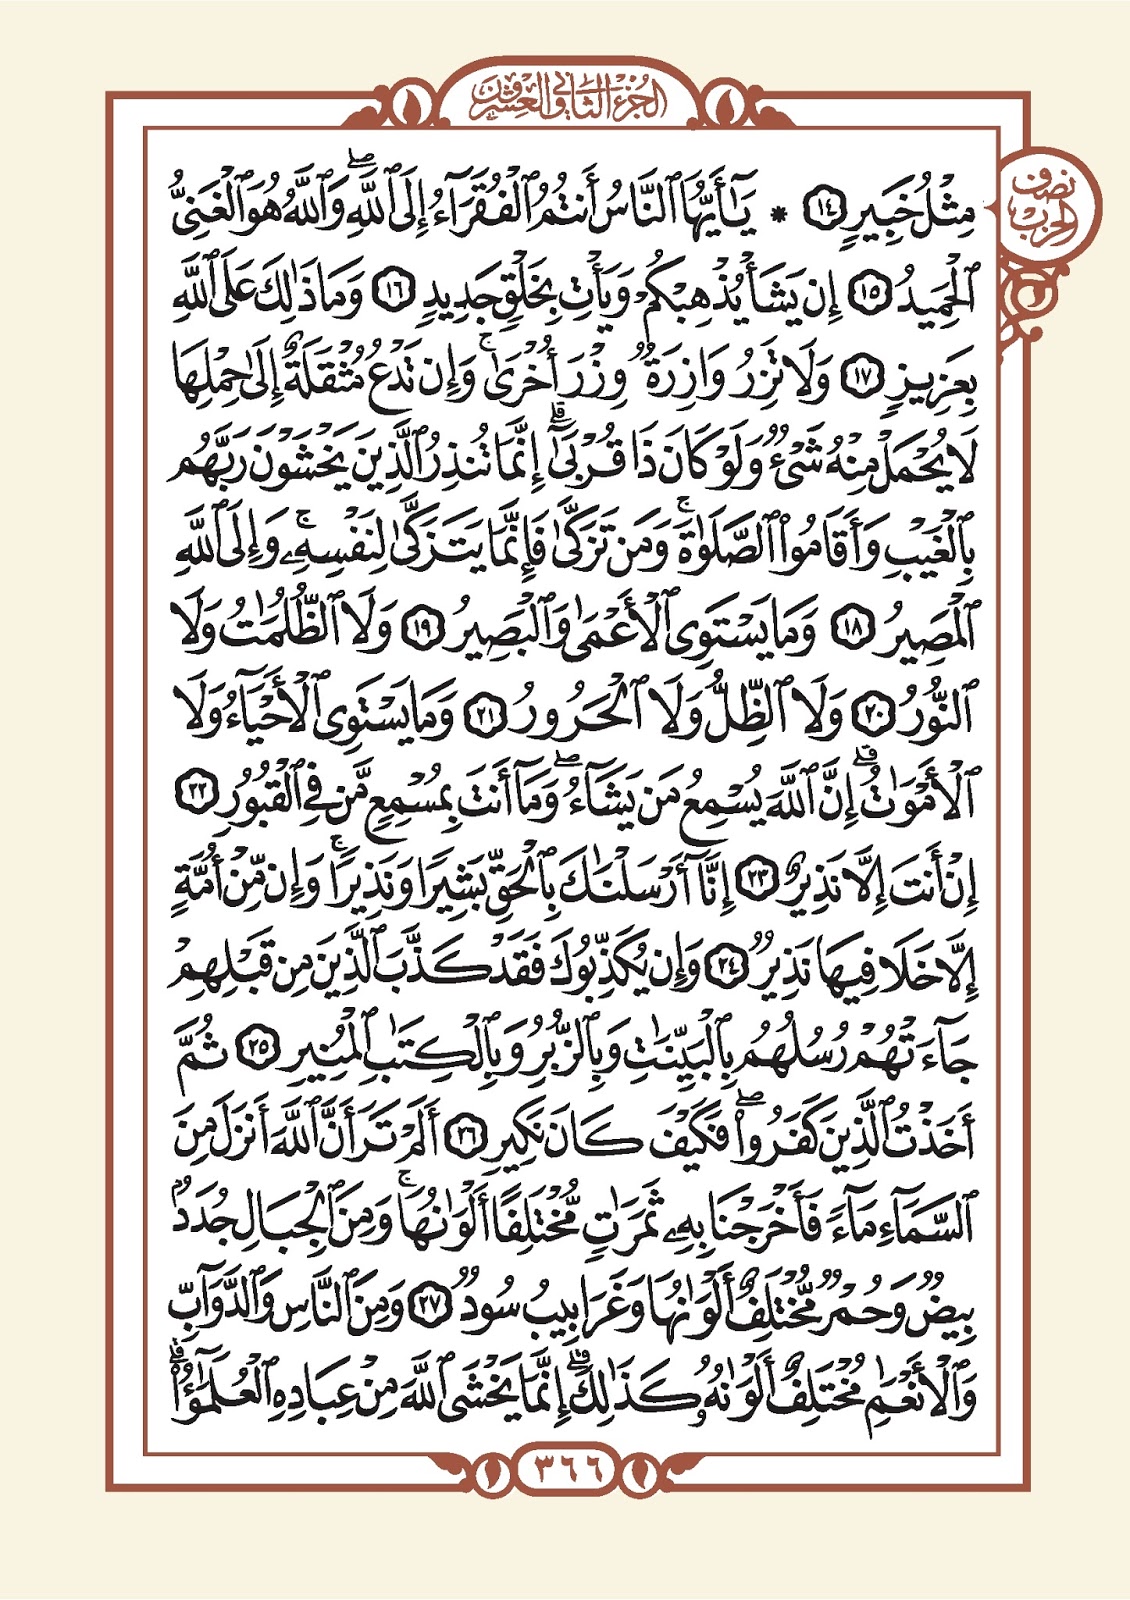 الجزء الثاني والعشرون
نصف
الحزب
مِثْلُ خَبِيرٍ ١٤ * يَٰٓأَيُّهَا ٱلنَّاسُ أَنتُمُ ٱلْفُقَرَآءُ إِلَى ٱللَّهِۖ وَٱللَّهُ هُوَ ٱلْغَنِىُّ
ٱلْحَمِيدُ ١٥ إِن يَشَأْ يُذْهِبْكُمْ وَيَأْتِ بِخَلْقٍ جَدِيدٍ ١٦ وَمَا ذَٰلِكَ عَلَى ٱللَّهِ
بِعَزِيزٍ ١٧ وَلَا تَزِرُ وَازِرَةٌ وِزْرَ أُخْرَىٰۚ وَإِن تَدْعُ مُثْقَلَةٌ إِلَىٰ حِمْلِهَا
لَا يُحْمَلْ مِنْهُ شَىْءٌ وَلَوْ كَانَ ذَا قُرْبَىٰٓۗ إِنَّمَا تُنذِرُ ٱلَّذِينَ يَخْشَوْنَ رَبَّهُم
بِٱلْغَيْبِ وَأَقَامُوا۟ ٱلصَّلَوٰةَۚ وَمَن تَزَكَّىٰ فَإِنَّمَا يَتَزَكَّىٰ لِنَفْسِهِۦۚ وَإِلَى ٱللَّهِ
ٱلْمَصِيرُ ١٨ وَمَا يَسْتَوِى ٱلْأَعْمَىٰ وَٱلْبَصِيرُ ١٩ وَلَا ٱلظُّلُمَٰتُ وَلَا
ٱلنُّورُ ٢٠ وَلَا ٱلظِّلُّ وَلَا ٱلْحَرُورُ ٢١ وَمَا يَسْتَوِى ٱلْأَحْيَآءُ وَلَا
ٱلْأَمْوَٰتُۚ إِنَّ ٱللَّهَ يُسْمِعُ مَن يَشَآءُۖ وَمَآ أَنتَ بِمُسْمِعٍ مَّن فِى ٱلْقُبُورِ ٢٢
إِنْ أَنتَ إِلَّا نَذِيرٌ ٢٣ إِنَّآ أَرْسَلْنَٰكَ بِٱلْحَقِّ بَشِيرًا وَنَذِيرًاۚ وَإِن مِّنْ أُمَّةٍ
إِلَّا خَلَا فِيهَا نَذِيرٌ ٢٤ وَإِن يُكَذِّبُوكَ فَقَدْ كَذَّبَ ٱلَّذِينَ مِن قَبْلِهِمْ
جَآءَتْهُمْ رُسُلُهُم بِٱلْبَيِّنَٰتِ وَبِٱلزُّبُرِ وَبِٱلْكِتَٰبِ ٱلْمُنِيرِ ٢٥ ثُمَّ
أَخَذْتُ ٱلَّذِينَ كَفَرُوا۟ۖ فَكَيْفَ كَانَ نَكِيرِ ٢٦ أَلَمْ تَرَ أَنَّ ٱللَّهَ أَنزَلَ مِنَ
ٱلسَّمَآءِ مَآءً فَأَخْرَجْنَا بِهِۦ ثَمَرَٰتٍ مُّخْتَلِفًا أَلْوَٰنُهَاۚ وَمِنَ ٱلْجِبَالِ جُدَدٌۢ
بِيضٌ وَحُمْرٌ مُّخْتَلِفٌ أَلْوَٰنُهَا وَغَرَابِيبُ سُودٌ ٢٧ وَمِنَ ٱلنَّاسِ وَٱلدَّوَآبِّ
وَٱلْأَنْعَٰمِ مُخْتَلِفٌ أَلْوَٰنُهُۥ كَذَٰلِكَۗ إِنَّمَا يَخْشَى ٱللَّهَ مِنْ عِبَادِهِ ٱلْعُلَمَٰٓؤُا۟ۗ
٣٦٦